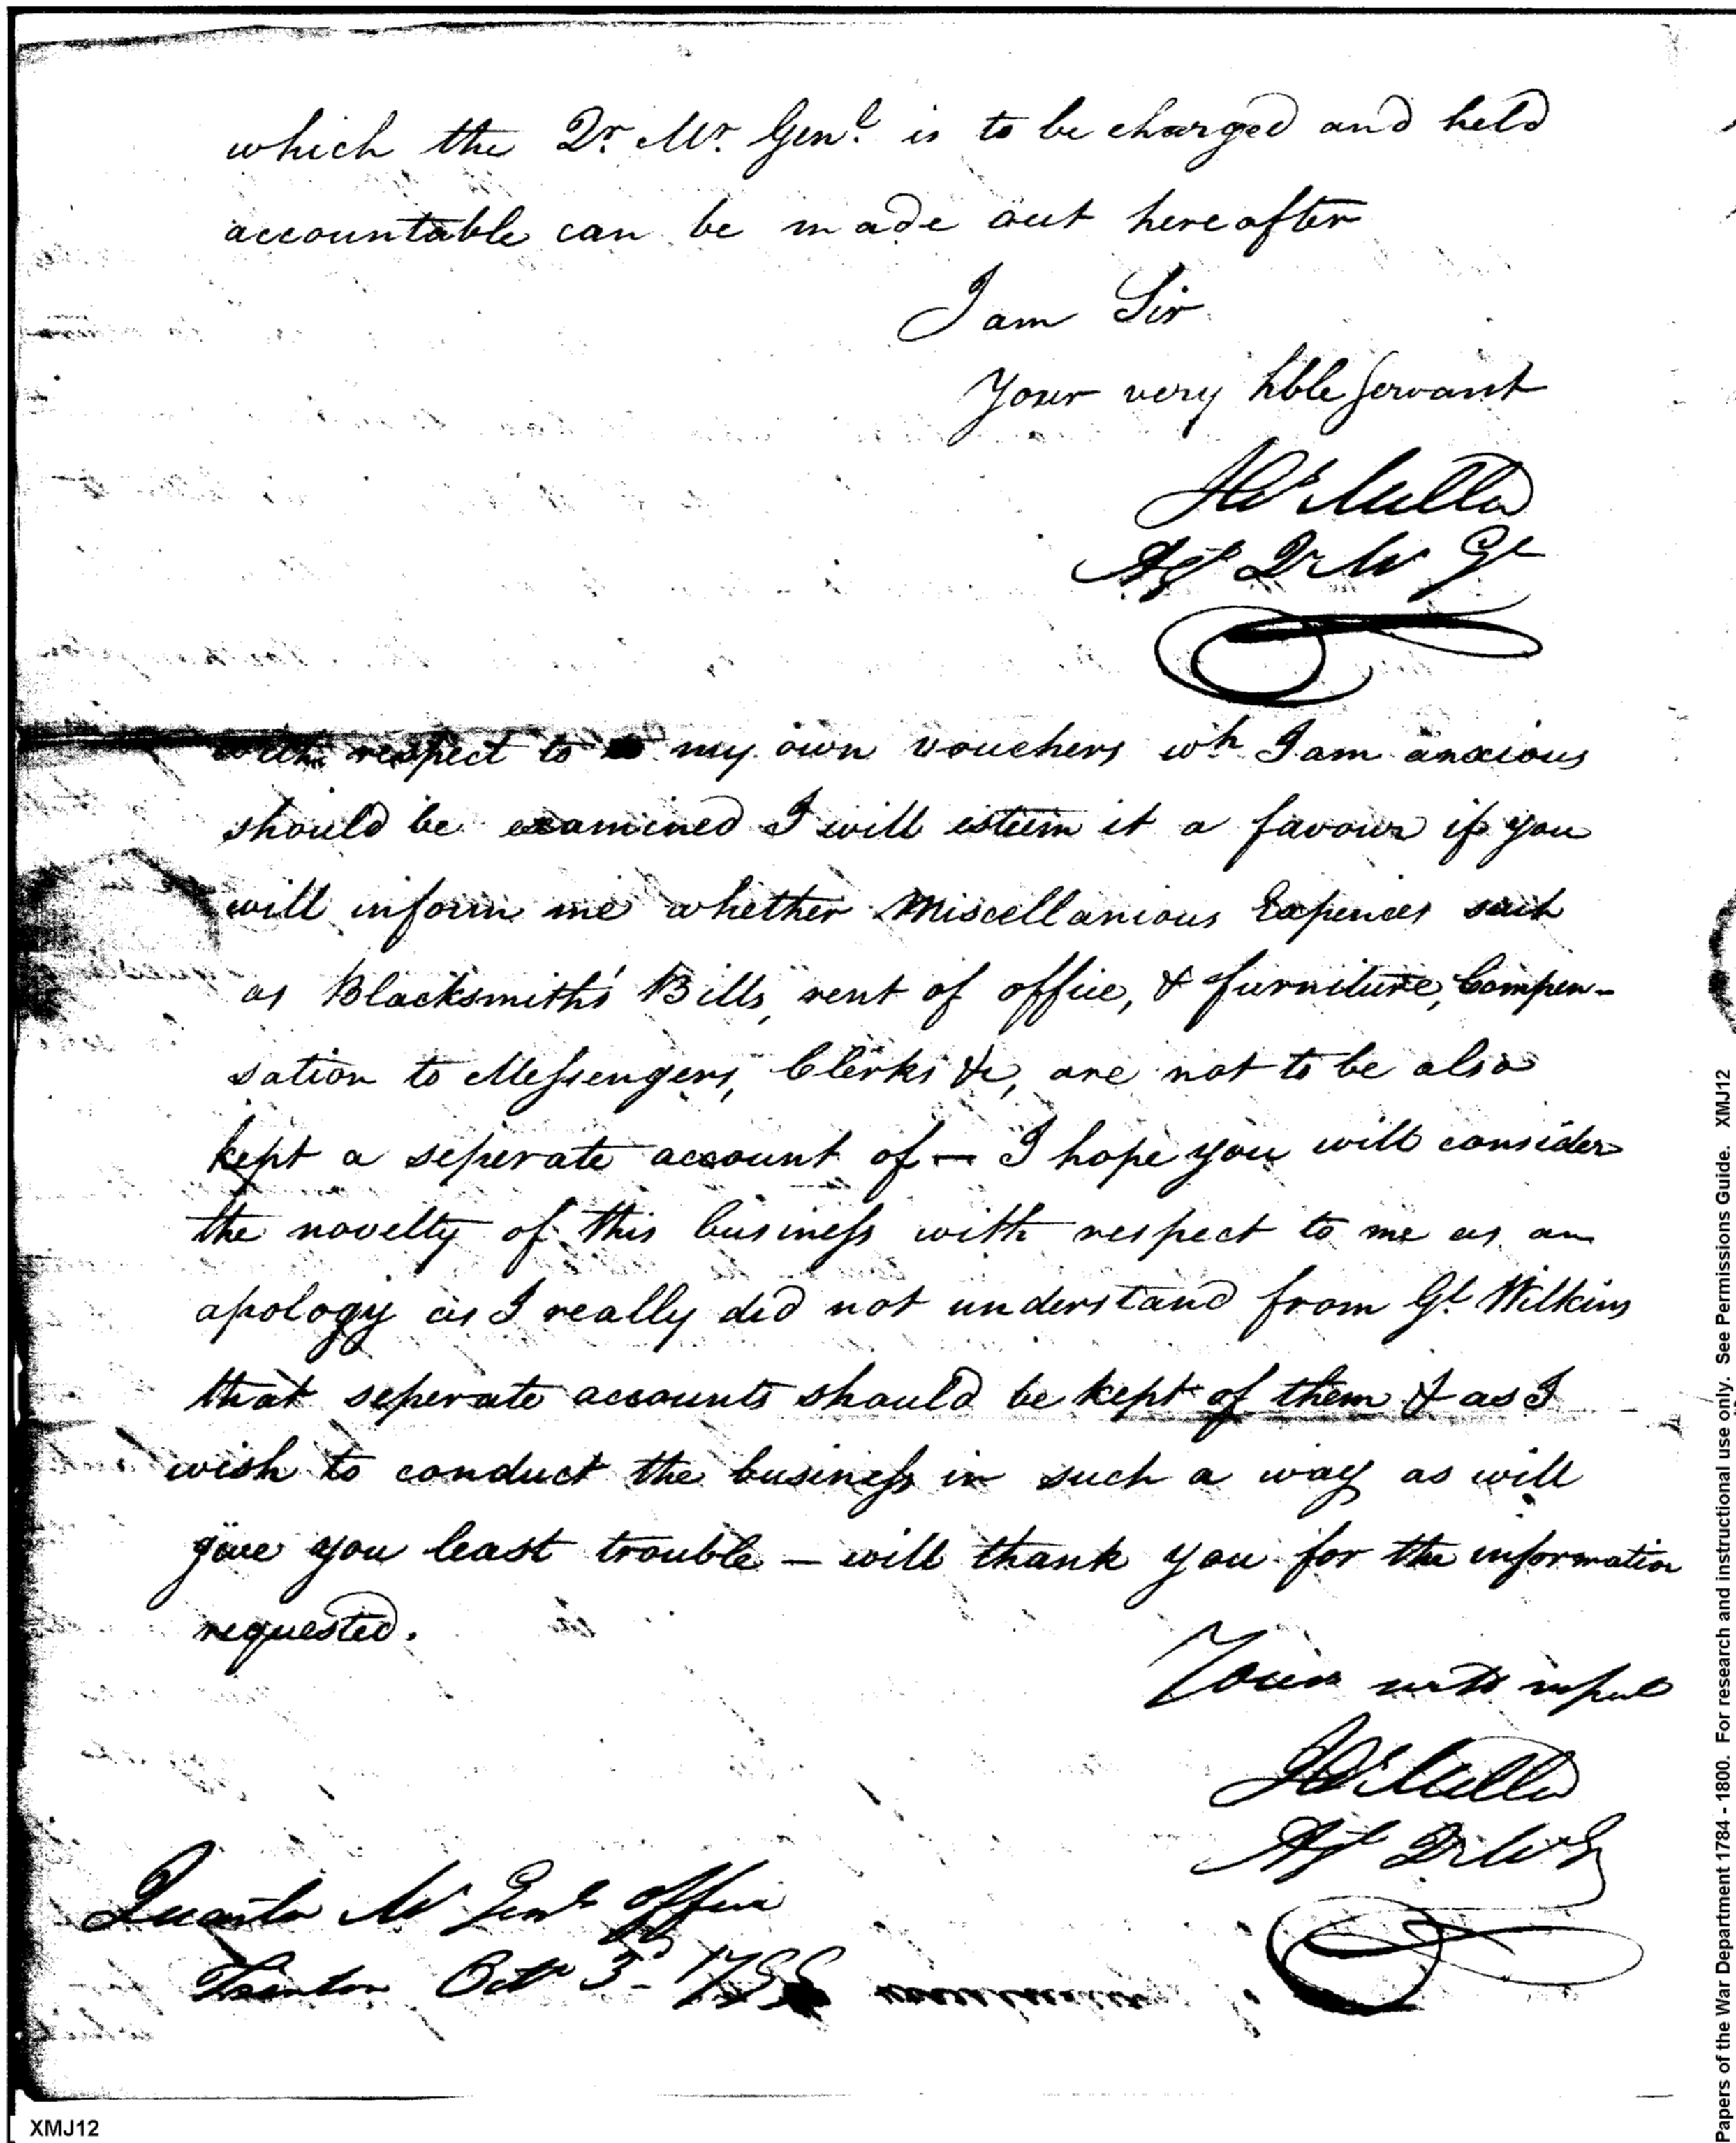 which the Qr. Mr. Genl. is to be charged and held
accountable can be made out hereafter
I am Sir
Your very hble servant
Jn Miller
Ast Qr Mr Gl
with respect to my own vouchers wh I am anxious
should be examined I will esteem it a favour if you
will inform me whether Miscellanious Expences such
as Blacksmiths' Bills, rent of office, & furniture, Compen-
sation to Messengers, Clerks &c, are not to be also
kept a seperate account of — I hope you will consider
the novelty of this business with respect to me as an
apology as I really did not understand from Gl Wilkins
that seperate accounts should be kept of them & as I
wish to conduct the business in such a way as will
give you least trouble — will thank you for the information
requested.
Yours with respect
Miller
Ast Qr Mr G
Quarter Mr Genls office
Trenton Octr 3d 179
XMJ12
Papers of the War Department 1784 - 1800. For research and instructional use only. See Permissions Guide. XMJ12